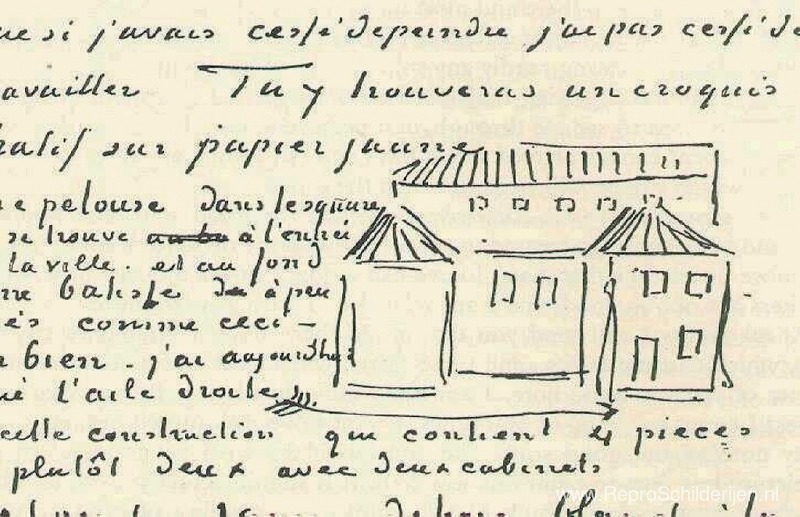 que si j'avais cessé de peindre j'ai pas cessé de
travailler Tu y trouveras un croquis
hatif sur papier jaune
pelouse dans le square
se trouve à l'entrée
la ville et au fond
une batisse à peu
près comme ceci –
bien. j'ai aujourdhui
l'aile droite
cette construction qui contient 4 pieces
plutôt deux avec deux cabinets
www.ReproSchilderijen.nl